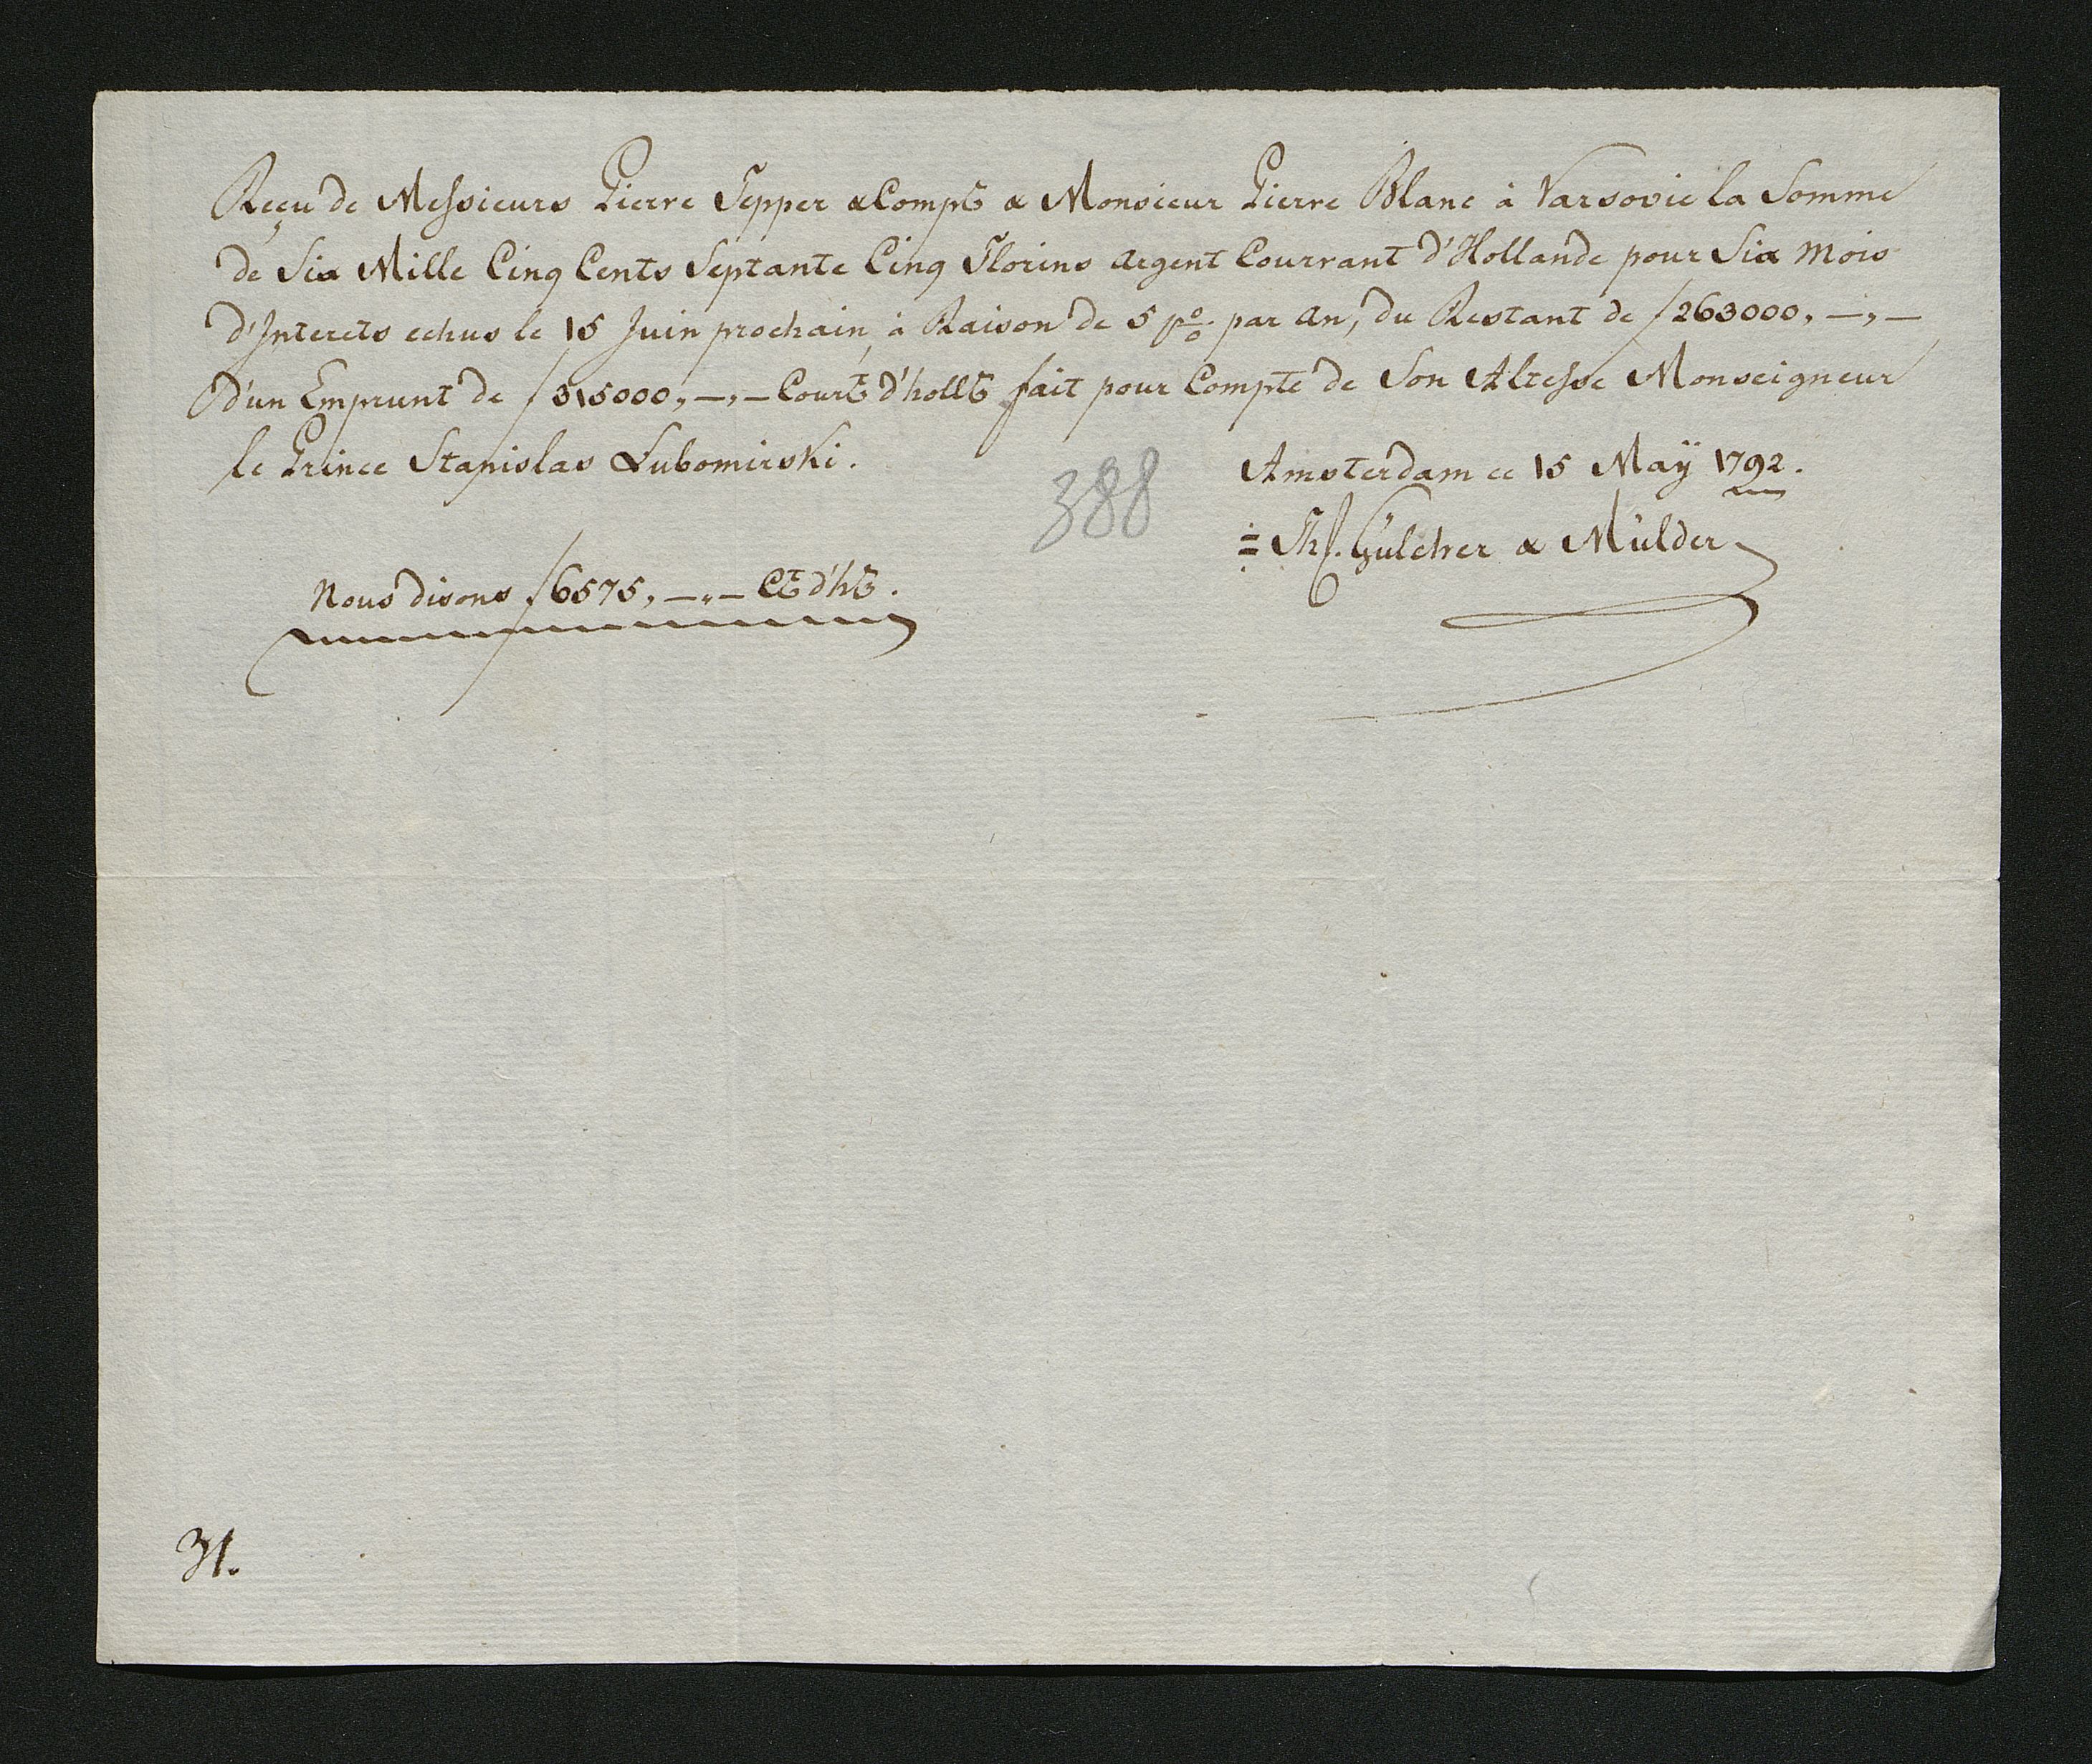 Reçu de Messieurs Pierre Tepper & Compe & Monsieur Pierre Blanc à Varsovie la Somme
de Six Mille Cinq Cents Septante Cinq Florins argent Courrant d'Hollande pour Six Mois
d'Interets echus le 15 Juin prochain, à Raison de 5 p% par an, du Restant de f 263000,—,—
d'un Emprunt de f 315000,—,— Court d'holle fait pour Compte de Son Altesse Monseigneur
le Prince Stanislas Lubomirski.
388
Amsterdam ce 15 Maÿ 1792.
Th. Gülcher & Mülder
Nous disons f 6575,—,— Ct d'he.
31.